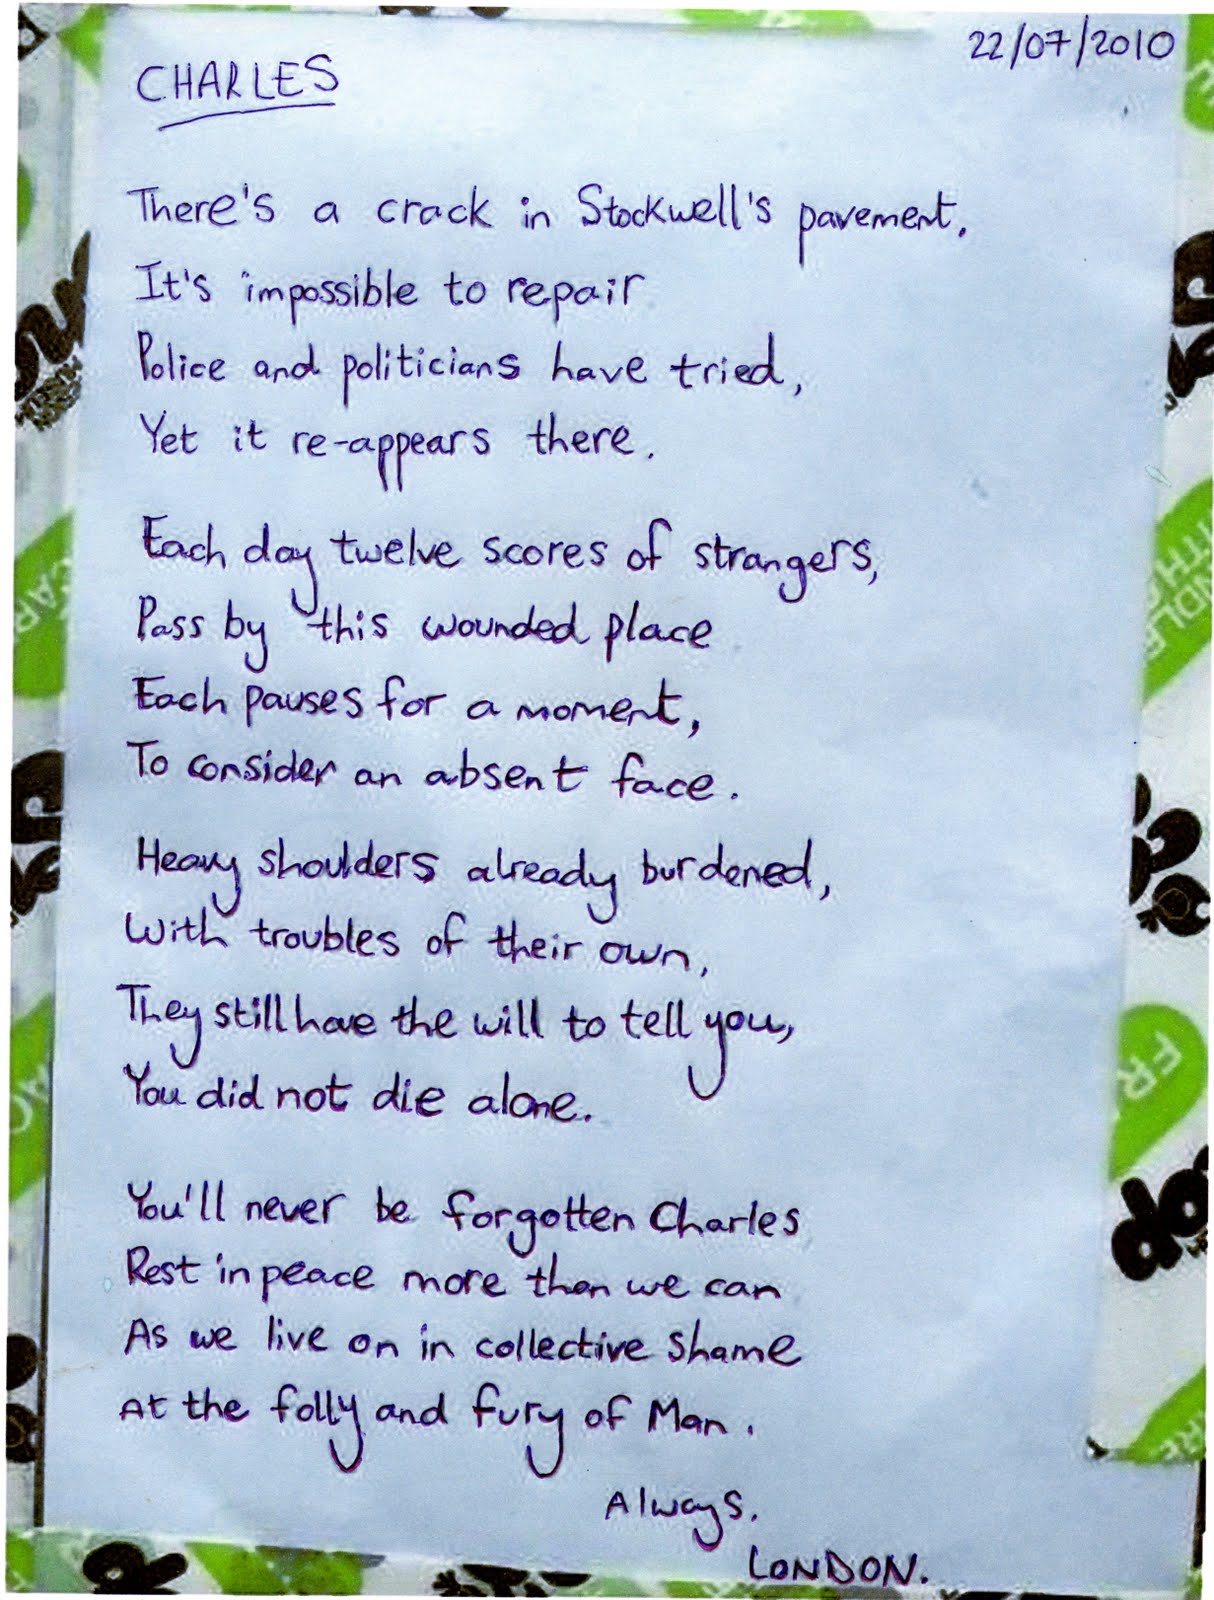 22/07/2010
CHARLES
There's a crack in Stockwell's pavement.
It's impossible to repair
Police and politicians have tried,
Yet it re-appears there.
Each day twelve scores of strangers,
Pass by this wounded place
Each pauses for a moment,
To consider an absent face.
Heavy shoulders already burdened,
With troubles of their own,
They still have the will to tell you,
You did not die alone.
You'll never be forgotten Charles
Rest in peace more than we can
As we live on in collective shame
At the folly and fury of Man.
Always.
LONDON.